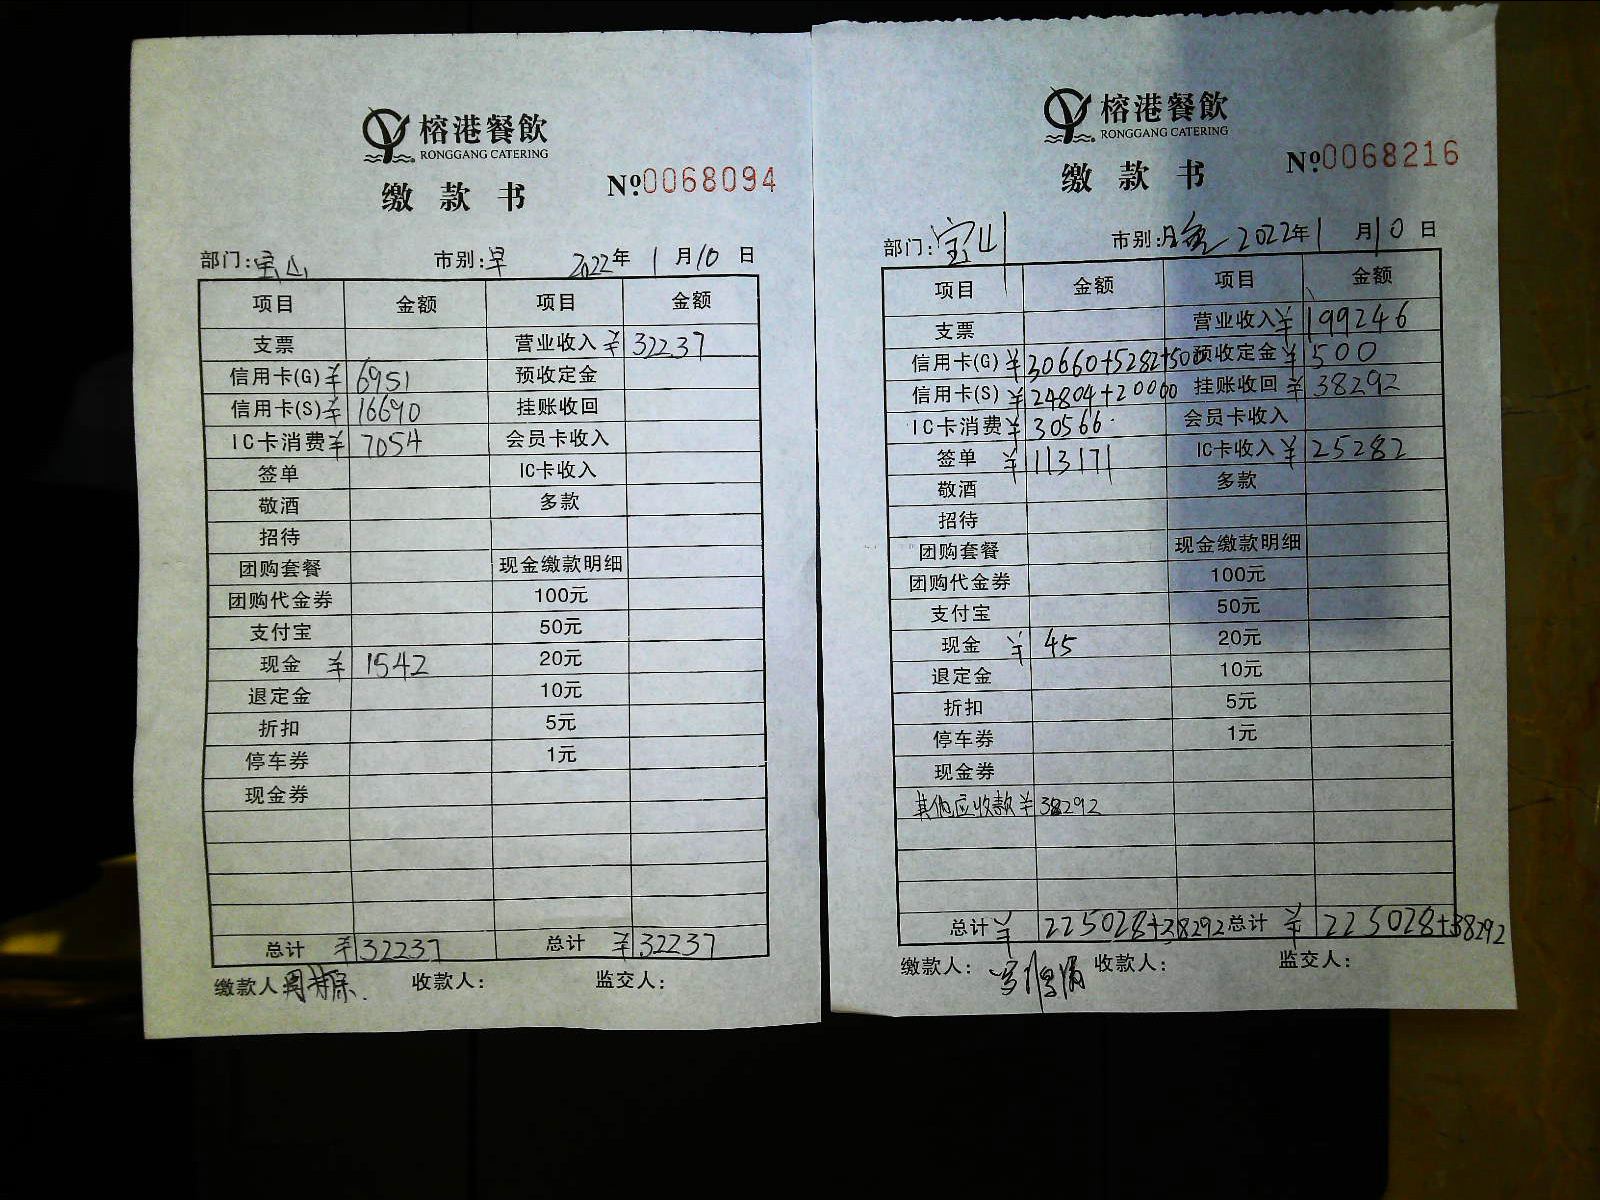 榕港餐飲
RONGGANG CATERING
缴款书
№0068094
部门:宝山 市别:早 2022年1月10日
项目 金额 项目 金额
支票 营业收入 ¥32237
信用卡(G) ¥6951 预收定金
信用卡(S) ¥16690 挂账收回
IC卡消费 ¥7054 会员卡收入
签单 IC卡收入
敬酒 多款
招待
团购套餐 现金缴款明细
团购代金券 100元
支付宝 50元
现金 ¥1542 20元
退定金 10元
折扣 5元
停车券 1元
现金券
总计 ¥32237 总计 ¥32237
缴款人 收款人: 监交人:
榕港餐飲
RONGGANG CATERING
缴款书
№0068216
部门:宝山 市别:晚 2022年1月10日
项目 金额 项目 金额
支票 营业收入 ¥199246
信用卡(G) ¥30660+5282+500 预收定金 ¥500
信用卡(S) ¥24804+20000 挂账收回 ¥38292
IC卡消费 ¥30566 会员卡收入
签单 ¥113171 IC卡收入 ¥25282
敬酒 多款
招待
团购套餐 现金缴款明细
团购代金券 100元
支付宝 50元
现金 ¥45 20元
退定金 10元
折扣 5元
停车券 1元
现金券
其他应收款 ¥38292
总计 ¥225028+38292 总计 ¥225028+38292
缴款人: 收款人: 监交人: